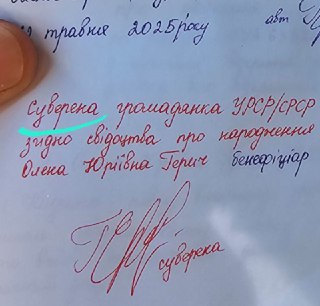 травня 2025 року авт
Суверена громадянка УРСР/СРСР
згідно свідоцтва про народження
Олена Юріївна Герич бенефіціар
суверена